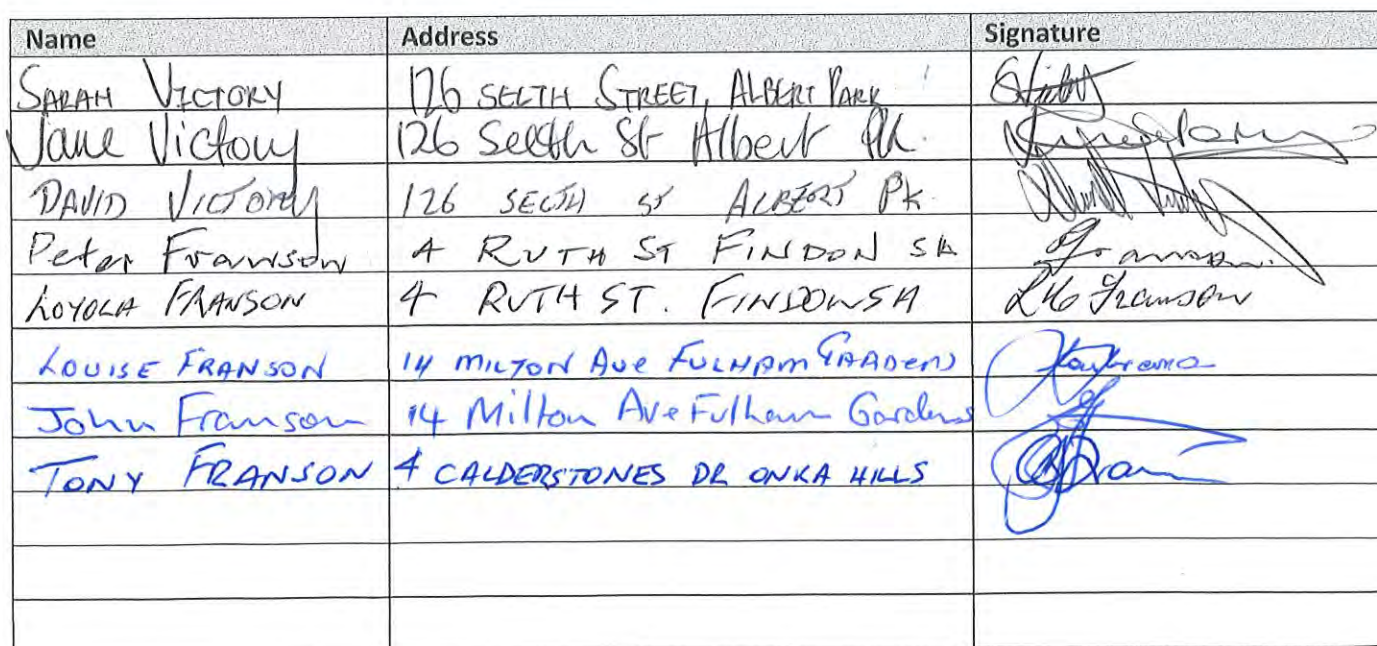 Name Address Signature
SARAH VICTORY 126 SELTH STREET, ALBERT PARK
Jane Victory 126 Selth St Albert Pk.
DAVID VICTORY 126 SELTH ST ALBERT PK.
Peter Franson 4 RUTH ST FINDON SA
LOYOLA FRANSON 4 RUTH ST. FINDON SA Franson
LOUISE FRANSON 14 MILTON AVE FULHAM GARDENS
John Franson 14 Milton Ave Fulham Gardens
TONY FRANSON 4 CALDERSTONES DR ONKA HILLS